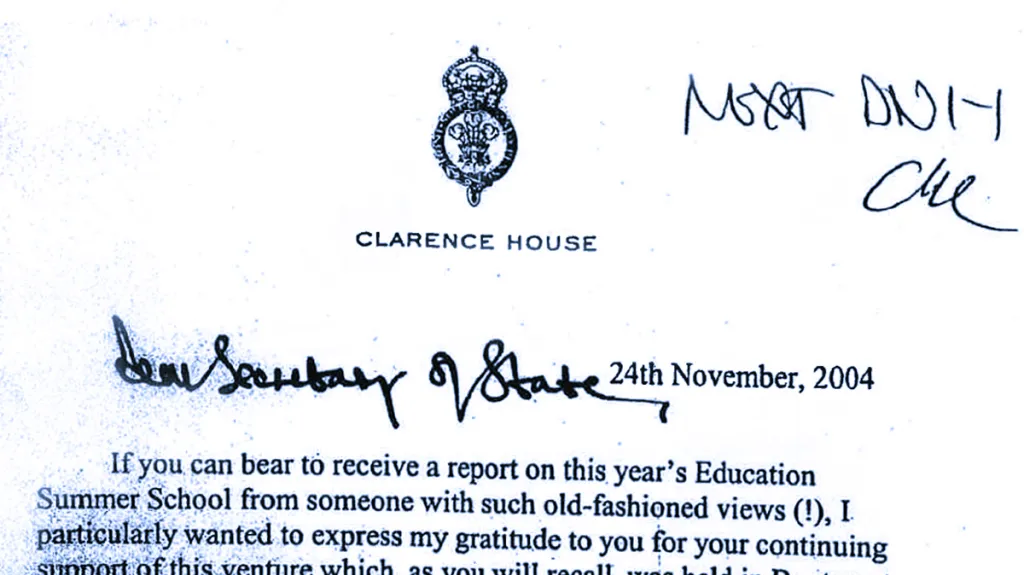 NEXT DNH
CLARENCE HOUSE
Dear Secretary of State, 24th November, 2004
If you can bear to receive a report on this year's Education
Summer School from someone with such old-fashioned views (!), I
particularly wanted to express my gratitude to you for your continuing
support of this venture which, as you will recall, was held in